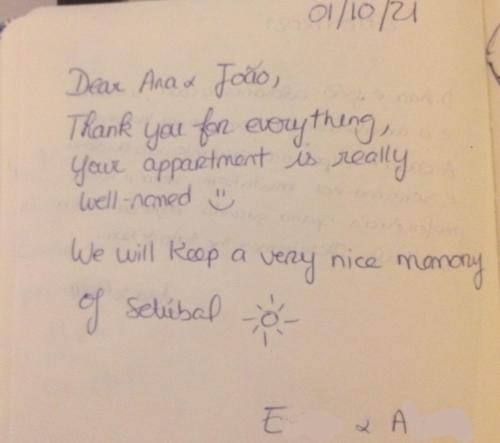 01/10/21
Dear Ana & João,
Thank you for everything,
your appartment is really
well-named
We will keep a very nice memory
of Setúbal
E & A